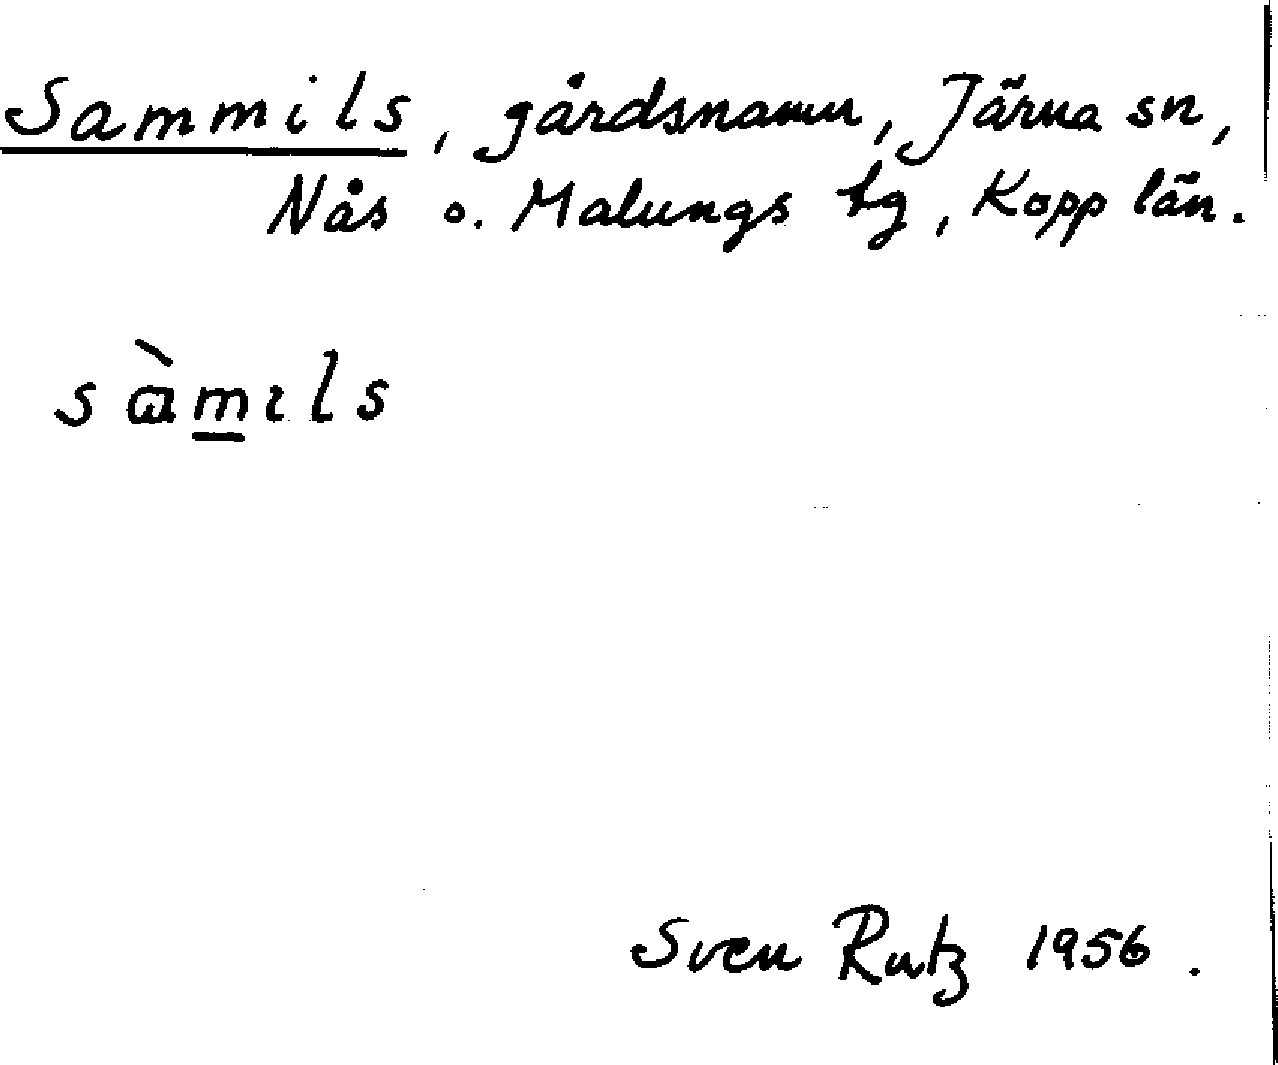 Sammils, gårdsnamn, Järna sn,
Nås o. Malungs tg, Kopp län.
sàm̲ıls
Sven Rutz 1956.